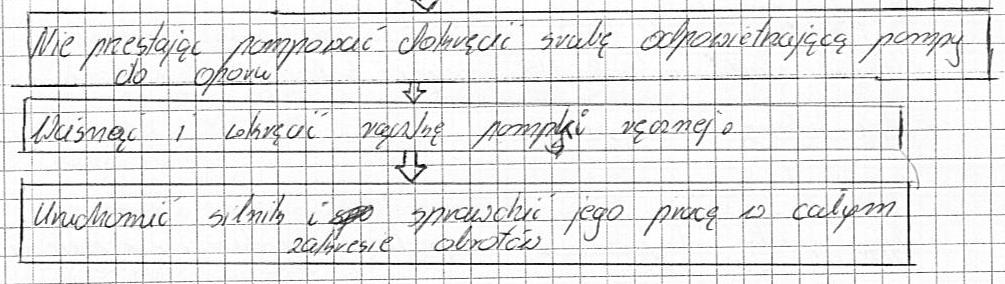 Nie przestając pompować dokręcić śrubę odpowietrzającą pompy
do oporu
Wcisnąć i wkręcić rączkę pompki ręcznej.
Uruchomić silnik i sprawdzić jego pracę w całym
zakresie obrotów